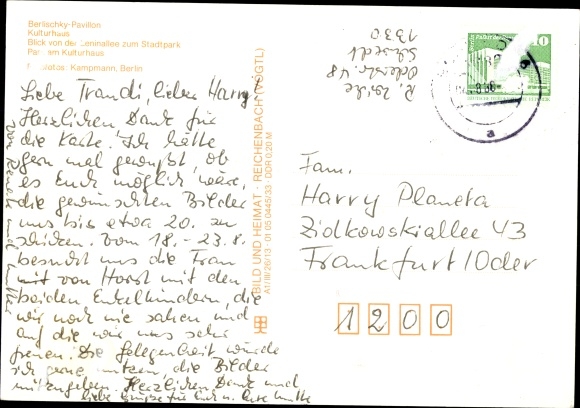 Berlischky-Pavillon
Kulturhaus
Blick von der Leninallee zum Stadtpark
Park am Kulturhaus
Fotos: Kampmann, Berlin
Liebe Traudi, lieber Harry!
Herzlichen Dank für
die Karte. Ich hätte
gern mal gewußt, ob
es Euch möglich wäre,
die gewünschten Bilder
uns bis etwa 20. zu
schicken. Vom 18.-23.8.
besucht uns die Frau
mit von Horst mit den
beiden Enkelkindern, die
wir noch nie sahen und
auf die wir uns sehr
freuen. Die Gelegenheit würde
ich gerne nutzen, die Bilder
mitzugeben. Herzlichen Dank und
liebe Grüße für Euch u. Eure Mutti
von Renate und
BILD UND HEIMAT · REICHENBACH (VOGTL)
A1/III/26/13 · 01 05 0445/33 · DDR 0,20 M
R.
Oderstr. 48
Schwedt
1330
10
a
Fam.
Harry Planeta
Ziolkowskiallee 43
Frankfurt/Oder
1200